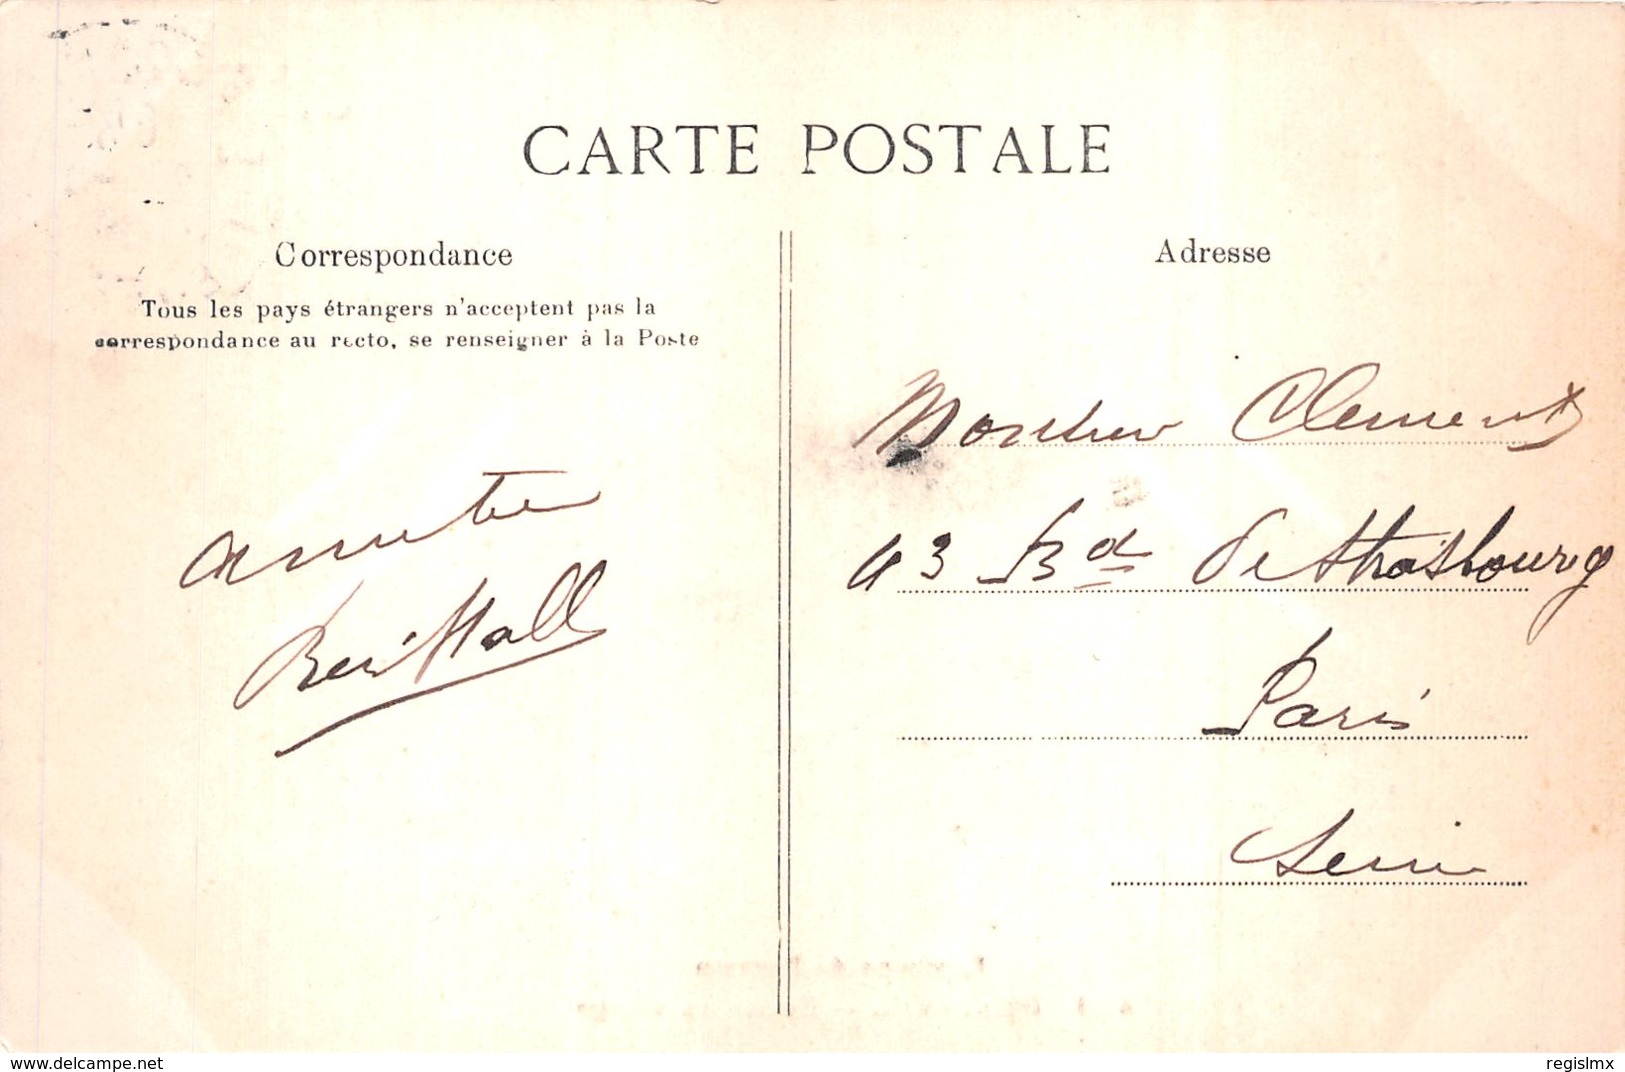 CARTE POSTALE
Correspondance
Tous les pays étrangers n'acceptent pas la
correspondance au recto, se renseigner à la Poste
Adresse
Monsieur Clement
43 Bd de Strasbourg
Paris
Seine
www.delcampe.net
regislmx